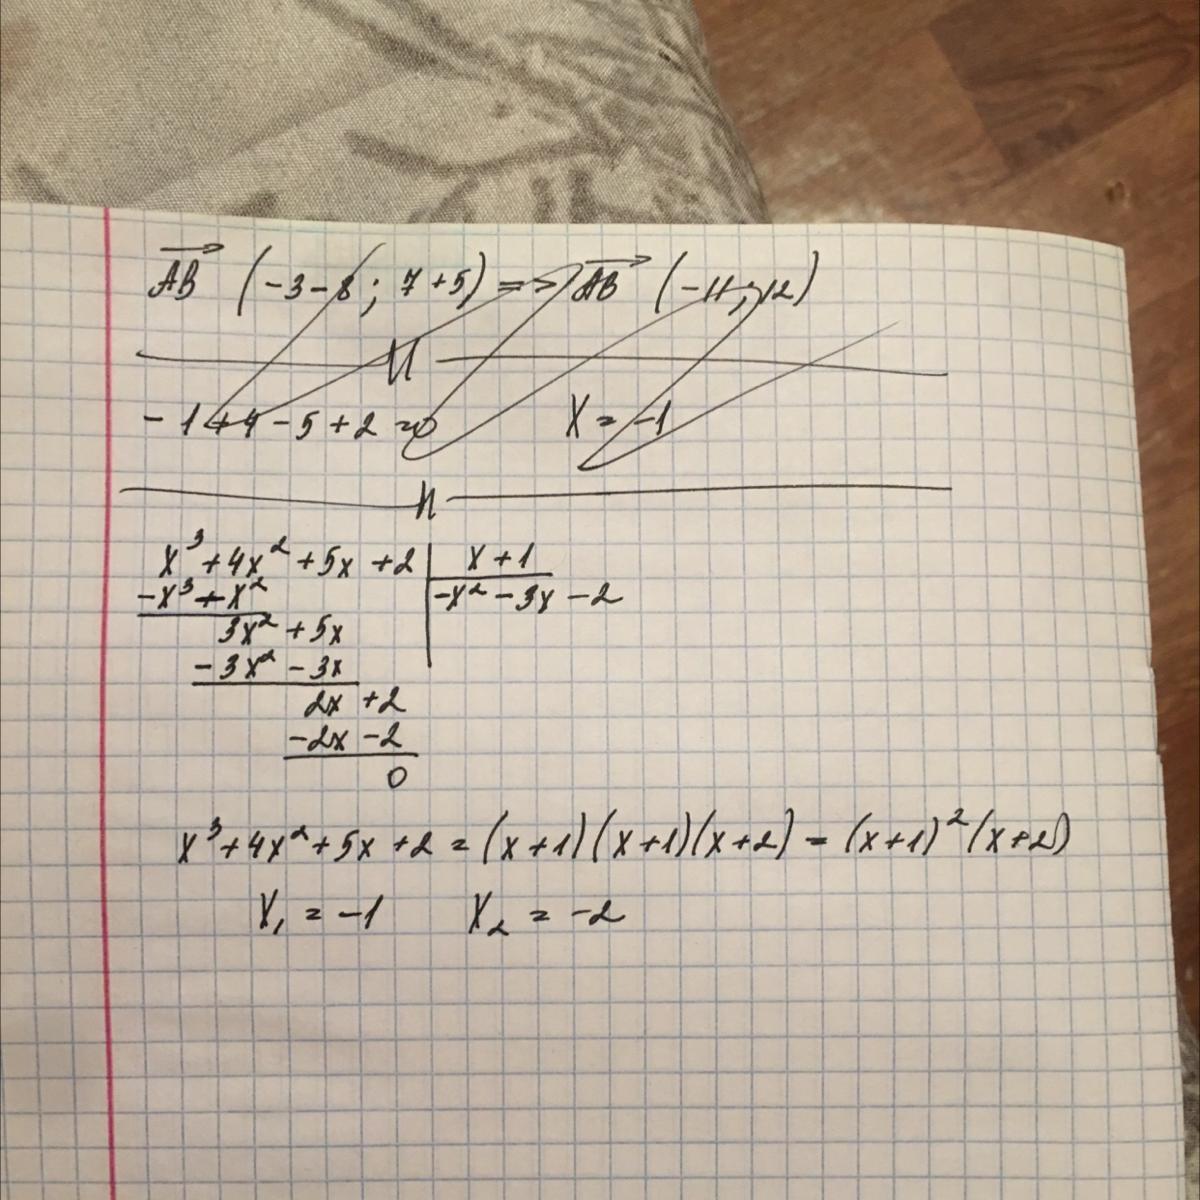 AB (-3-8; 7+5) => AB (-11; 12)
-1+4-5+2=0 X=-1
x³+4x²+5x+2 | x+1
-x³-x² | -x²-3x-2
3x²+5x
-3x²-3x
2x+2
-2x-2
0
x³+4x²+5x+2=(x+1)(x+1)(x+2)=(x+1)²(x+2)
X₁=-1 X₂=-2